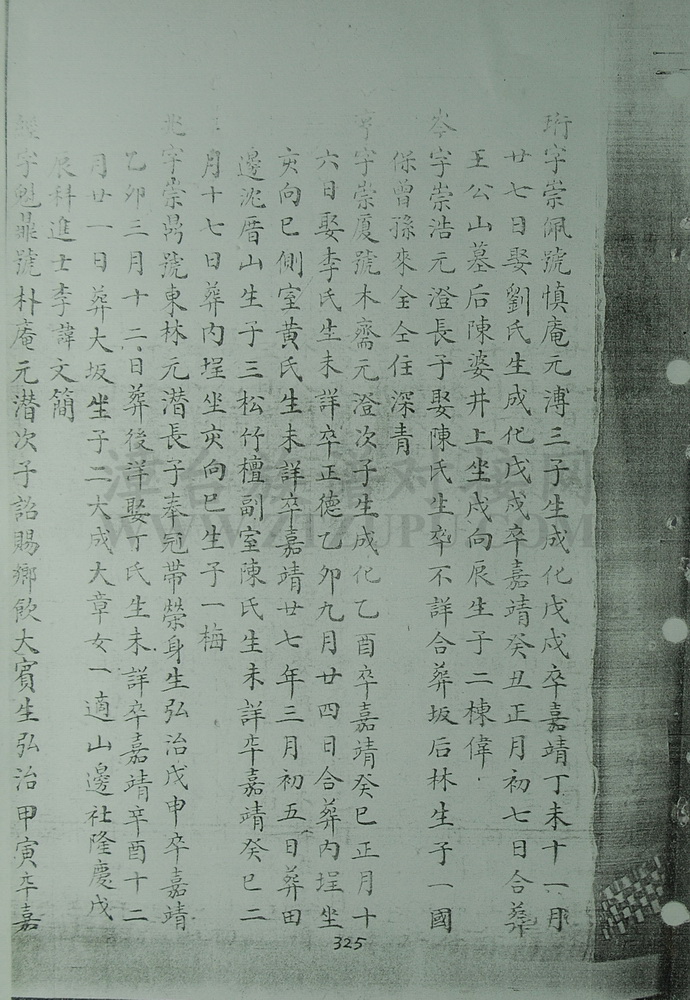 珩字崇佩號慎庵元溥三子生成化戊戌卒嘉靖丁未十一月
廿七日娶劉氏生成化戊戌卒嘉靖癸丑正月初七日合葬
王公山墓后陳婆井上坐戍向辰生子二棟偉
岑字崇浩元澄長子娶陳氏生卒不詳合葬坂后林生子一國
保曾孫來全仝住深青
字崇厦號木齋元澄次子生成化乙酉卒嘉靖癸巳正月十
六日娶李氏生未詳卒正德乙卯九月廿四日合葬内埕坐
亥向巳側室黄氏生未詳卒嘉靖廿七年三月初五日葬田
邊沈厝山生子三松竹檀副室陳氏生未詳卒嘉靖癸巳二
月十七日葬内埕坐亥向巳生子一梅
兆字崇岊號東林元潛長子奉冠帶榮身生弘治戊申卒嘉靖
乙卯三月十二日葬後詳娶丁氏生未詳卒嘉靖辛酉十二
月廿一日葬大坂坐子二大成大章女一適山邊社隆慶戊
辰科進士李諱文簡
字魁鼎號朴庵元潛次子詔賜鄉飲大賓生弘治甲寅卒嘉
325
WWW.ZTZUPU.COM